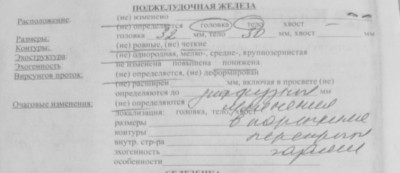 ПОДЖЕЛУДОЧНАЯ ЖЕЛЕЗА
(не) изменено
Расположение: (не) определяется головка тело хвост —
Размеры: головка 32 мм, тело 30 мм, хвост — мм
Контуры: (не) ровные, (не) четкие
Эхоструктура: (не) однородная, мелко-, средне-, крупнозернистая
Эхогенность не изменена повышена понижена
Вирсунгов проток: (не) определяется, (не) деформирован
(не) расширен мм, включая в просвете (не)
определяются до диффузные
Очаговые изменения: (не) определяются изменения
локализация: головка, тело,
размеры в
контуры
внутр. стр-ра
эхогенность
особенности